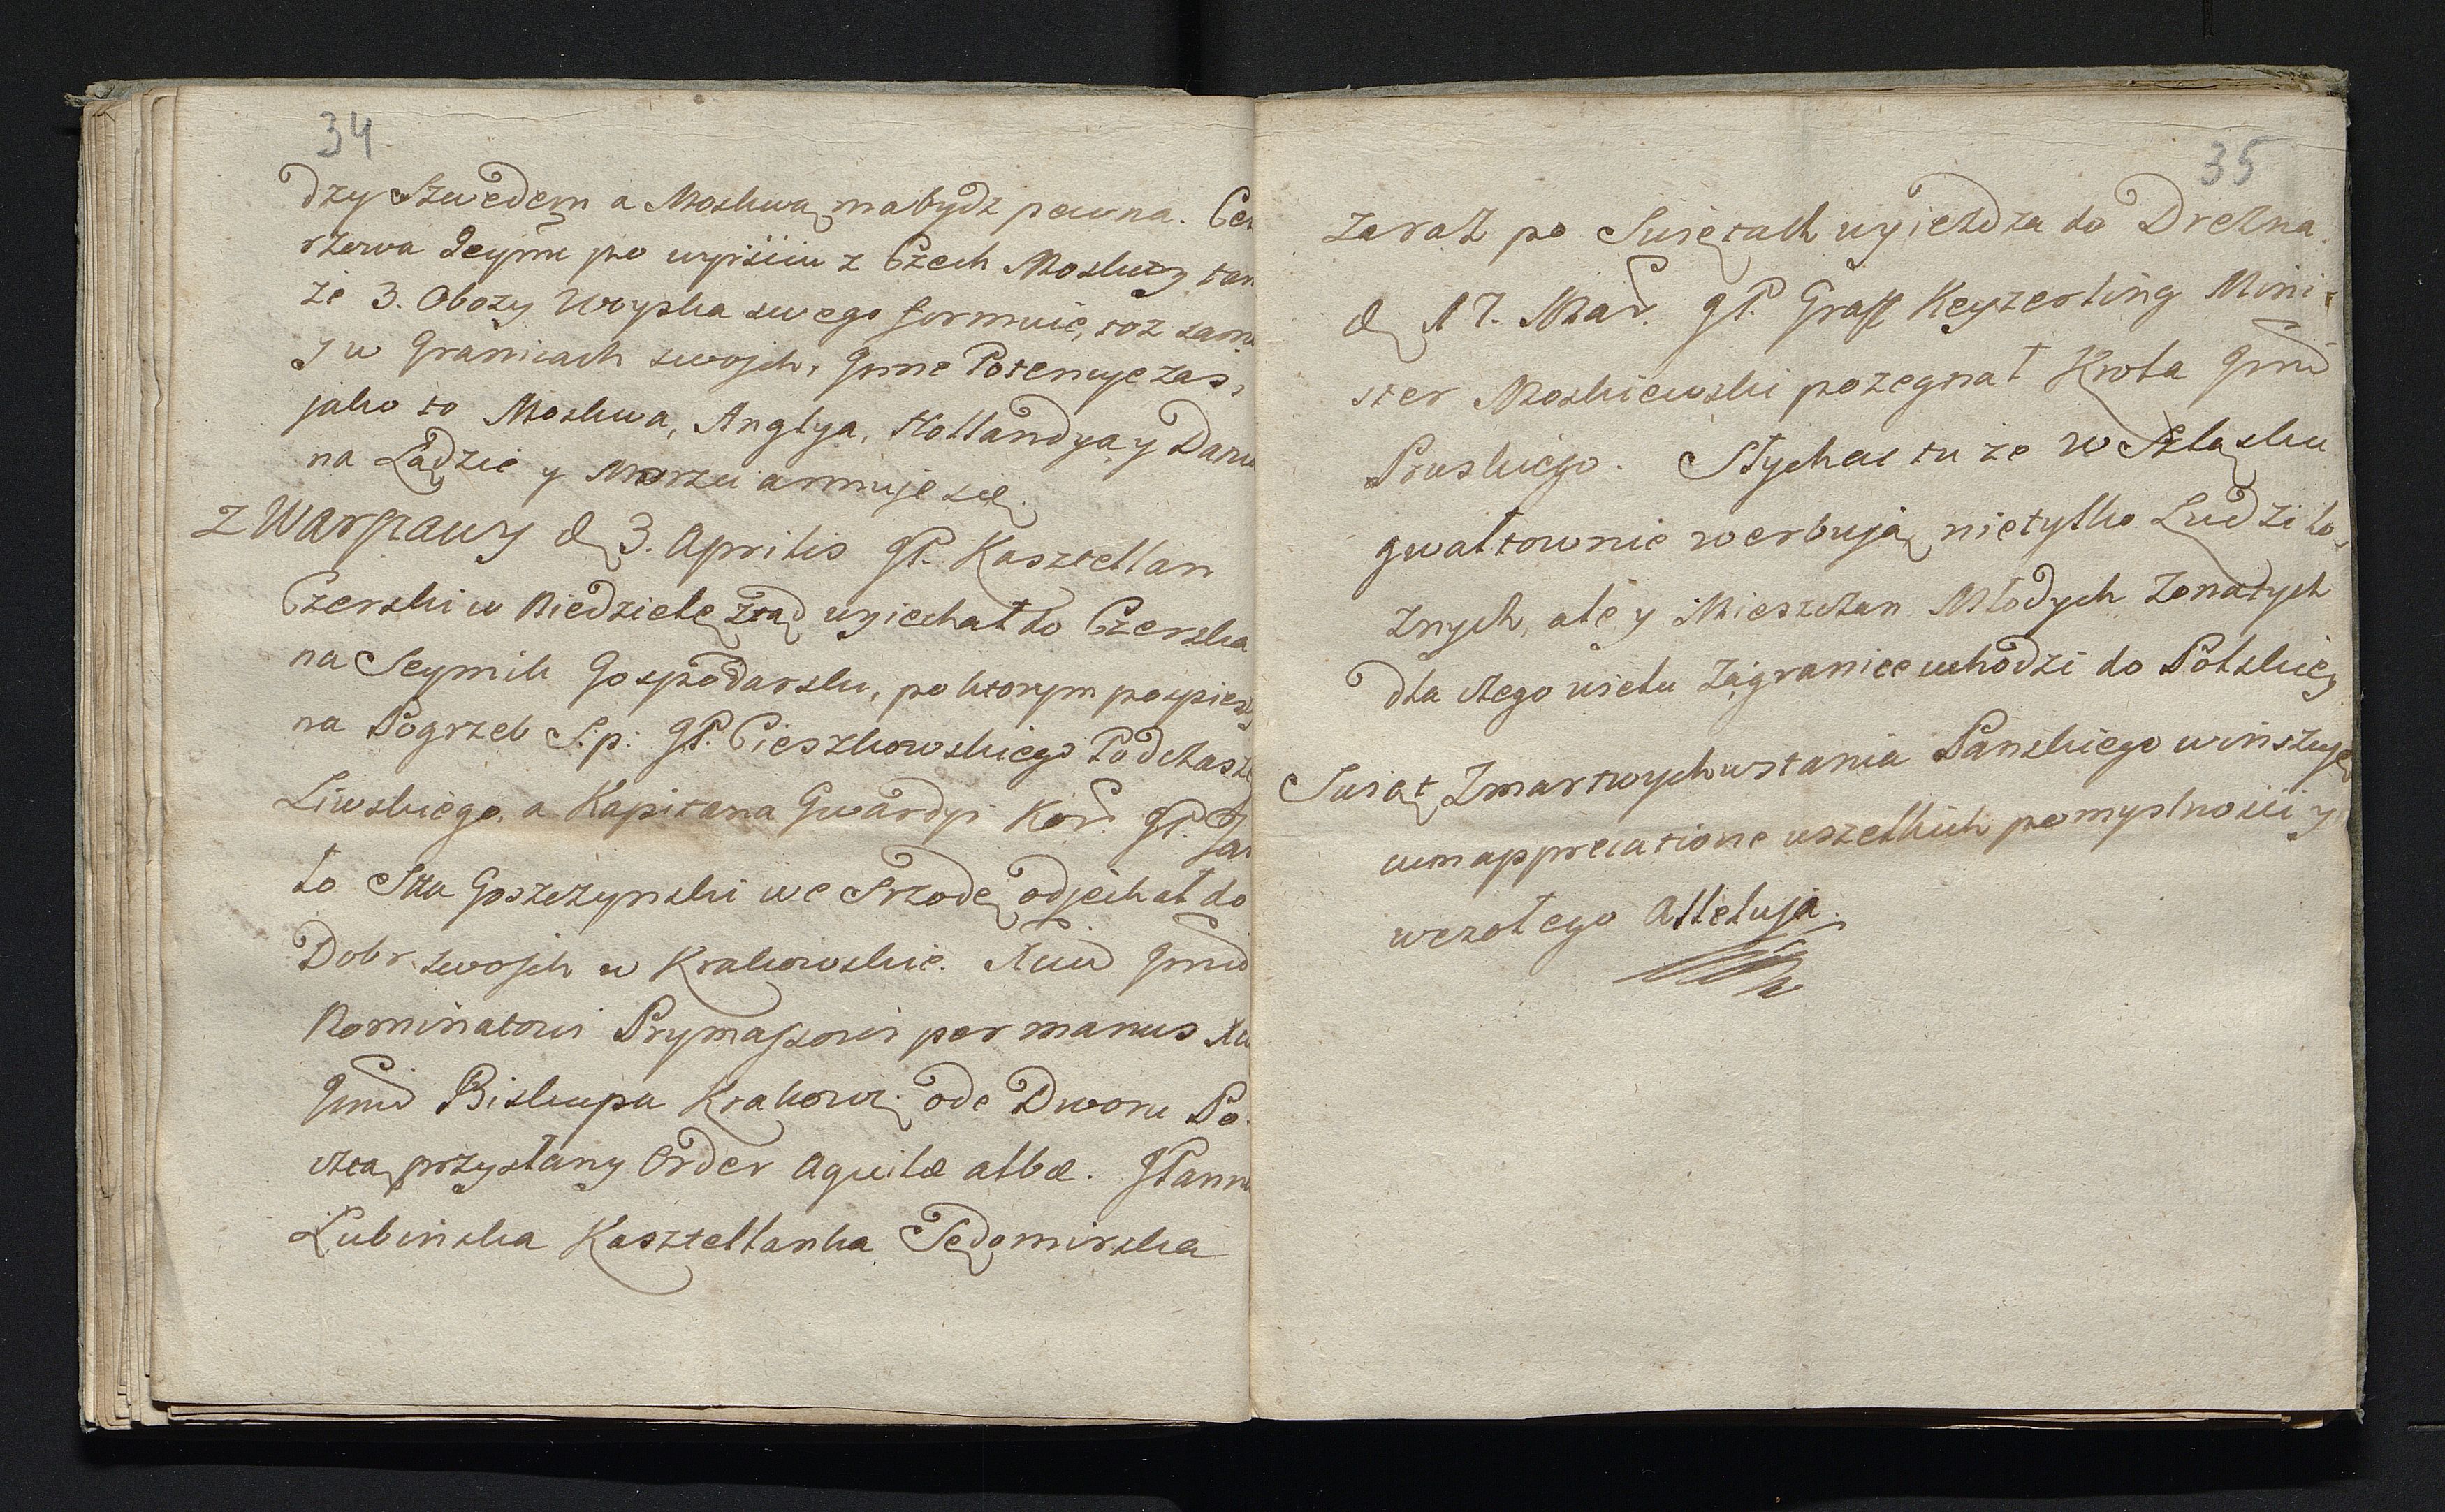 34
dzy Szwedem a Moskwą ma bydz pewna. Ce
rzowa Jeym̃ po wyisciu z Czech Moskwy tam
ze 3. Obozy Woyska swego formuie, toz samo
y w Granicach swojch, Jnne Potencye zas,
jako to Moskwa, Anglya, Hollandya, y Dani
na Lądzie y Morzu armuje się.
Z Warszawy d. 3. Aprilis JP. Kasztellan
Czerski w Niedzielę ztąd wyiechał do Czerska
na Seymik Gospodarsku, po ktorym pospieszy
na Pogrzeb S. p: JP. Cieszkowskiego Podczasze
Liwskiego, a Kapitana Gwardyi Kor. JP.
to Stta Goszczynski we Srzodę odjechał do
Dobr swojch w Krakowskie. Xciu Jmci
Nominatowi Prymasowi per manus Xci
Jmci Biskupa Krakow: ode Dworu Po-
cztą przysłany Order Aquilæ albæ. JPanna
Lubinska Kasztellanka Sędomirska
35
zaraz po Swiętach wyiezdza do Drezna.
d. 17. Mar. JP. Graff Keyzerling Mini-
ster Moskiewski pozegnał Krola Jmci
Pruskiego. Słychac tu ze w Szląsku
gwałtownie werbują nietylko Ludzi lo-
znych, ale y Mieszczan Młodych Zonatych
dla tego wielu Zagranicę uchodzi do Polskiey
Swiąt Zmartwychwstania Panskiego winszuję
cum apprecatione wszelkich pomyslnosci y
wesołego Alleluja.